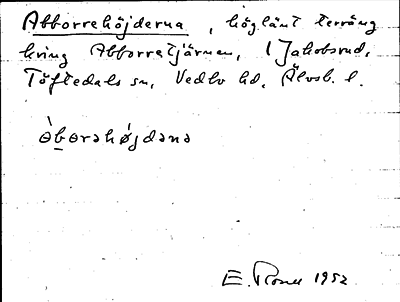 Abborrehöjderna, höglänt terräng
kring Abborretjärnen, 1 Jakobsrud,
Töftedals sn, Vedbo hd, Älvsb. l.
àb̲ɵrəhǿjdənɵ
E. 1952